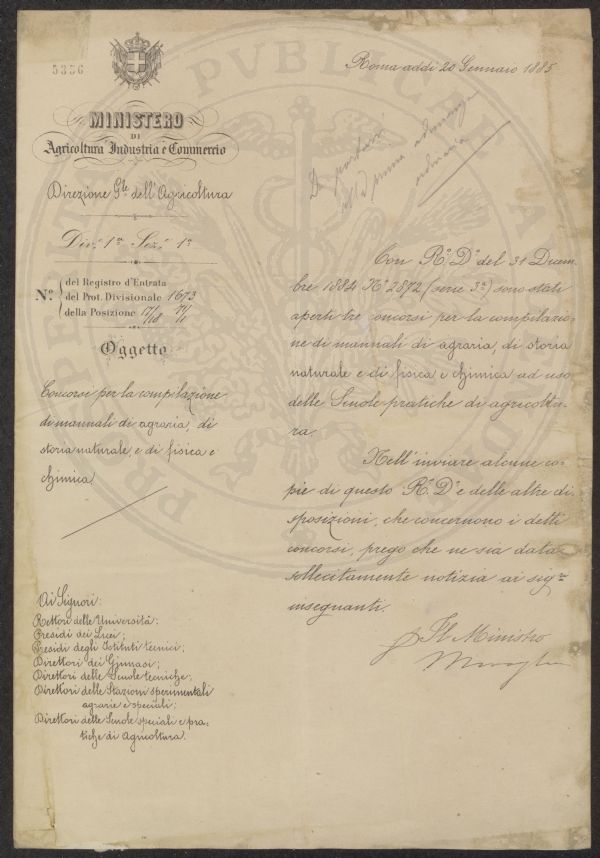 5356
Roma addì 20 Gennaio 1885
MINISTERO
DI
Agricoltura Industria e Commercio
Direzione Gle dell'Agricoltura
Div.e 1a Sez.e 1a
N.o
del Registro d'Entrata
del Prot. Divisionale 1673
della Posizione
Oggetto
Concorsi per la compilazione
di manuali di agraria, di
storia naturale, e di fisica e
chimica
Ai Signori:
Rettori delle Università;
Presidi dei Licei;
Presidi degli Istituti tecnici;
Direttori dei Ginnasi;
Direttori delle Scuole tecniche;
Direttori delle Stazioni sperimentali
agrarie e speciali;
Direttori delle Scuole speciali e pra-
tiche di Agricoltura.
Da portarsi
alla prima adunanza
Con R.o D.o del 31 Dicem-
bre 1884 N.o 2872 (serie 3a) sono stati
aperti tre concorsi per la compilazio-
ne di manuali di agraria, di storia
naturale e di fisica e chimica ad uso
delle Scuole pratiche di agricoltu-
ra.
Nell'inviare alcune co-
pie di questo R.o D.o e delle altre di-
sposizioni, che concernono i detti
concorsi, prego che ne sia data
sollecitamente notizia ai sig.ri
insegnanti.
Il Ministro